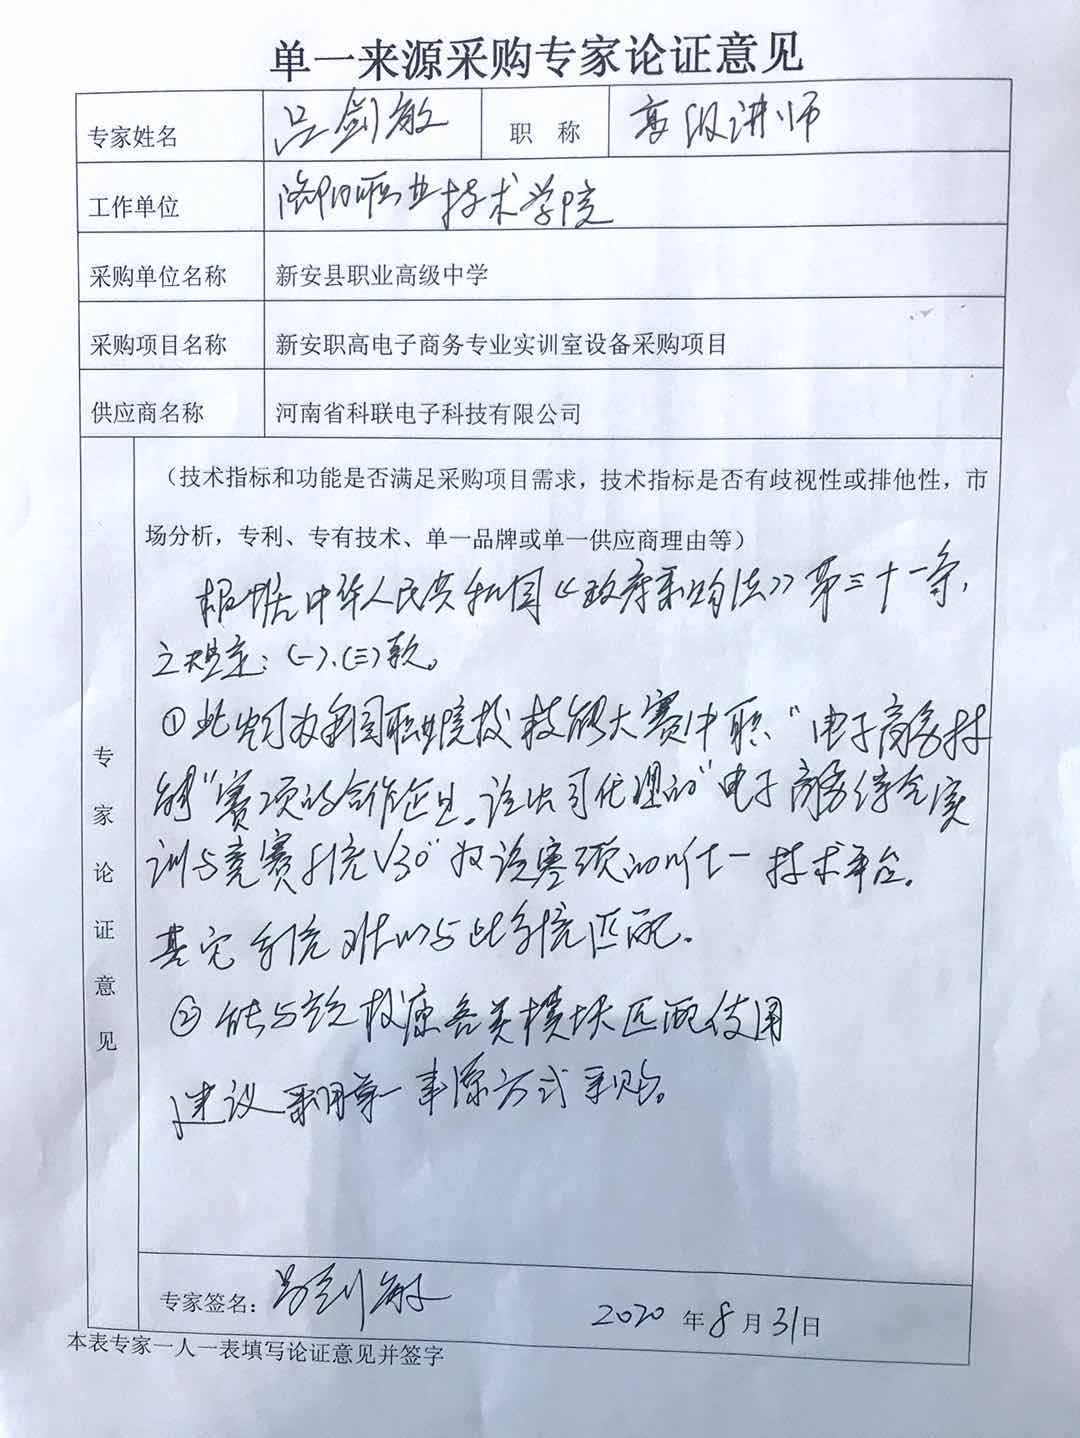 单一来源采购专家论证意见
专家姓名 吕剑敏 职 称 高级讲师
工作单位 洛阳职业技术学院
采购单位名称 新安县职业高级中学
采购项目名称 新安职高电子商务专业实训室设备采购项目
供应商名称 河南省科联电子科技有限公司
专家论证意见
（技术指标和功能是否满足采购项目需求，技术指标是否有歧视性或排他性，市
场分析，专利、专有技术、单一品牌或单一供应商理由等）
根据中华人民共和国《政府采购法》第三十一条，
之规定：(一)、(三)款。
①此公司为全国职业院校技能大赛中职“电子商务技
能”赛项的合作企业。该公司代理的“电子商务综合实
训与竞赛系统V3.0”为该赛项的唯一技术平台。
其它系统难以与此系统匹配。
②能与 校原各类模块匹配使用
建议采用单一来源方式采购。
专家签名：吕剑敏 2020年8月31日
本表专家一人一表填写论证意见并签字